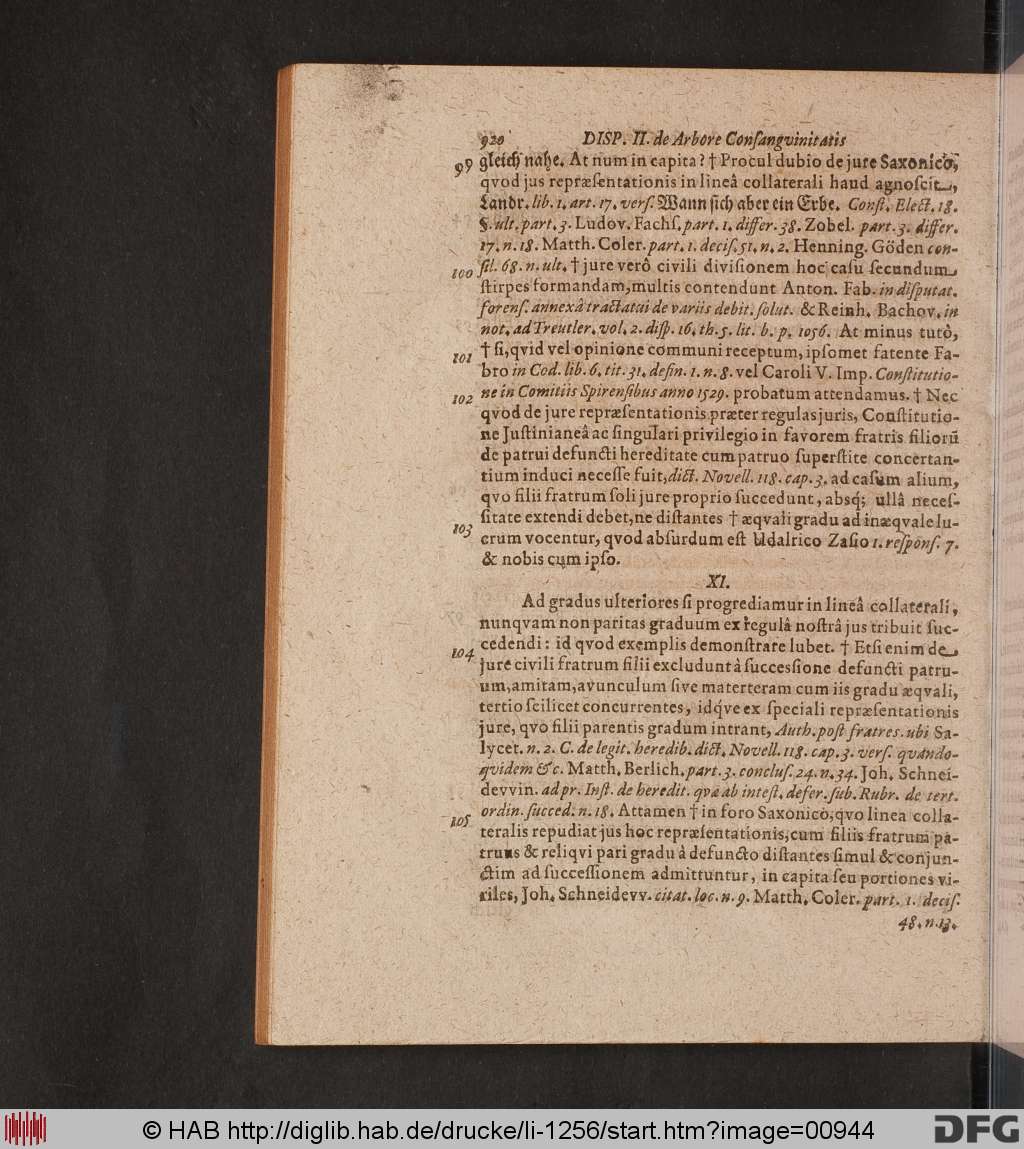 920 DISP. II. de Arbore Conſangvinitatis
99 gleich nahe. At num in capita? † Procul dubio de jure Saxonico,
qvod jus repræſentationis in lineâ collaterali haud agnoſcit,
Landr. lib. 1. art. 17. verſ. Wann ſich aber ein Erbe. Conſt. Elect. 18.
§. ult. part. 3. Ludov. Fachſ. part. 1. differ. 38. Zobel. part. 3. differ.
17. n. 18. Matth. Coler. part. 1. deciſ. 51. n. 2. Henning. Göden con-
100 ſil. 68. n. ult. † jure verô civili diviſionem hoc caſu ſecundum
ſtirpes formandam, multis contendunt Anton. Fab. in diſputat.
forenſ. annexâ tractatui de variis debit. ſolut. & Reinh. Bachov. in
not. ad Treutler. vol. 2. diſp. 16. th. 5. lit. b. p. 1056. At minus tutò,
101 † ſi, qvid vel opinione communi receptum, ipſomet fatente Fa-
bro in Cod. lib. 6. tit. 31. defin. 1. n. 8. vel Caroli V. Imp. Conſtitutio-
102 ne in Comitiis Spirenſibus anno 1529. probatum attendamus. † Nec
qvòd de jure repræſentationis præter regulas juris, Conſtitutio-
ne Juſtinianeâ ac ſingulari privilegio in favorem fratris filiorū
de patrui defuncti hereditate cum patruo ſuperſtite concertan-
tium induci neceſſe fuit, dict. Novell. 118. cap. 3. ad caſum alium,
qvo filii fratrum ſoli jure proprio ſuccedunt, absq; ullâ neceſ-
ſitate extendi debet, ne diſtantes † æqvali gradu ad inæqvale lu-
103 crum vocentur, qvod abſurdum eſt Udalrico Zaſio 1. reſponſ. 7.
& nobis cum ipſo.
XI.
Ad gradus ulteriores ſi progrediamur in lineâ collaterali,
nunqvam non paritas graduum ex regulâ noſtrâ jus tribuit ſuc-
cedendi: id qvod exemplis demonſtrare lubet. † Etſi enim de
104 jure civili fratrum filii excludunt à ſucceſſione defuncti patru-
um, amitam, avunculum ſive materteram cum iis gradu æqvali,
tertio ſcilicet concurrentes, idq́ve ex ſpeciali repræſentationis
jure, qvo filii parentis gradum intrant, Auth. poſt fratres. ubi Sa-
lycet. n. 2. C. de legit. heredib. dict. Novell. 118. cap. 3. verſ. qvando-
qvidem &c. Matth. Berlich. part. 3. concluſ. 24. n. 34. Joh. Schnei-
devvin. ad pr. Inſt. de heredit. qvæ ab inteſt. defer. ſub. Rubr. de tert.
ordin. ſucced. n. 18. Attamen † in foro Saxonico, qvo linea colla-
105 teralis repudiat jus hoc repræſentationis, cum filiis fratrum pa-
truus & reliqvi pari gradu à defuncto diſtantes ſimul & conjun-
ctim ad ſucceſſionem admittuntur, in capita ſeu portiones vi-
riles, Joh. Schneidevv. citat. loc. n. 9. Matth. Coler. part. 1. deciſ.
48. n. 13.
© HAB http://diglib.hab.de/drucke/li-1256/start.htm?image=00944
DFG